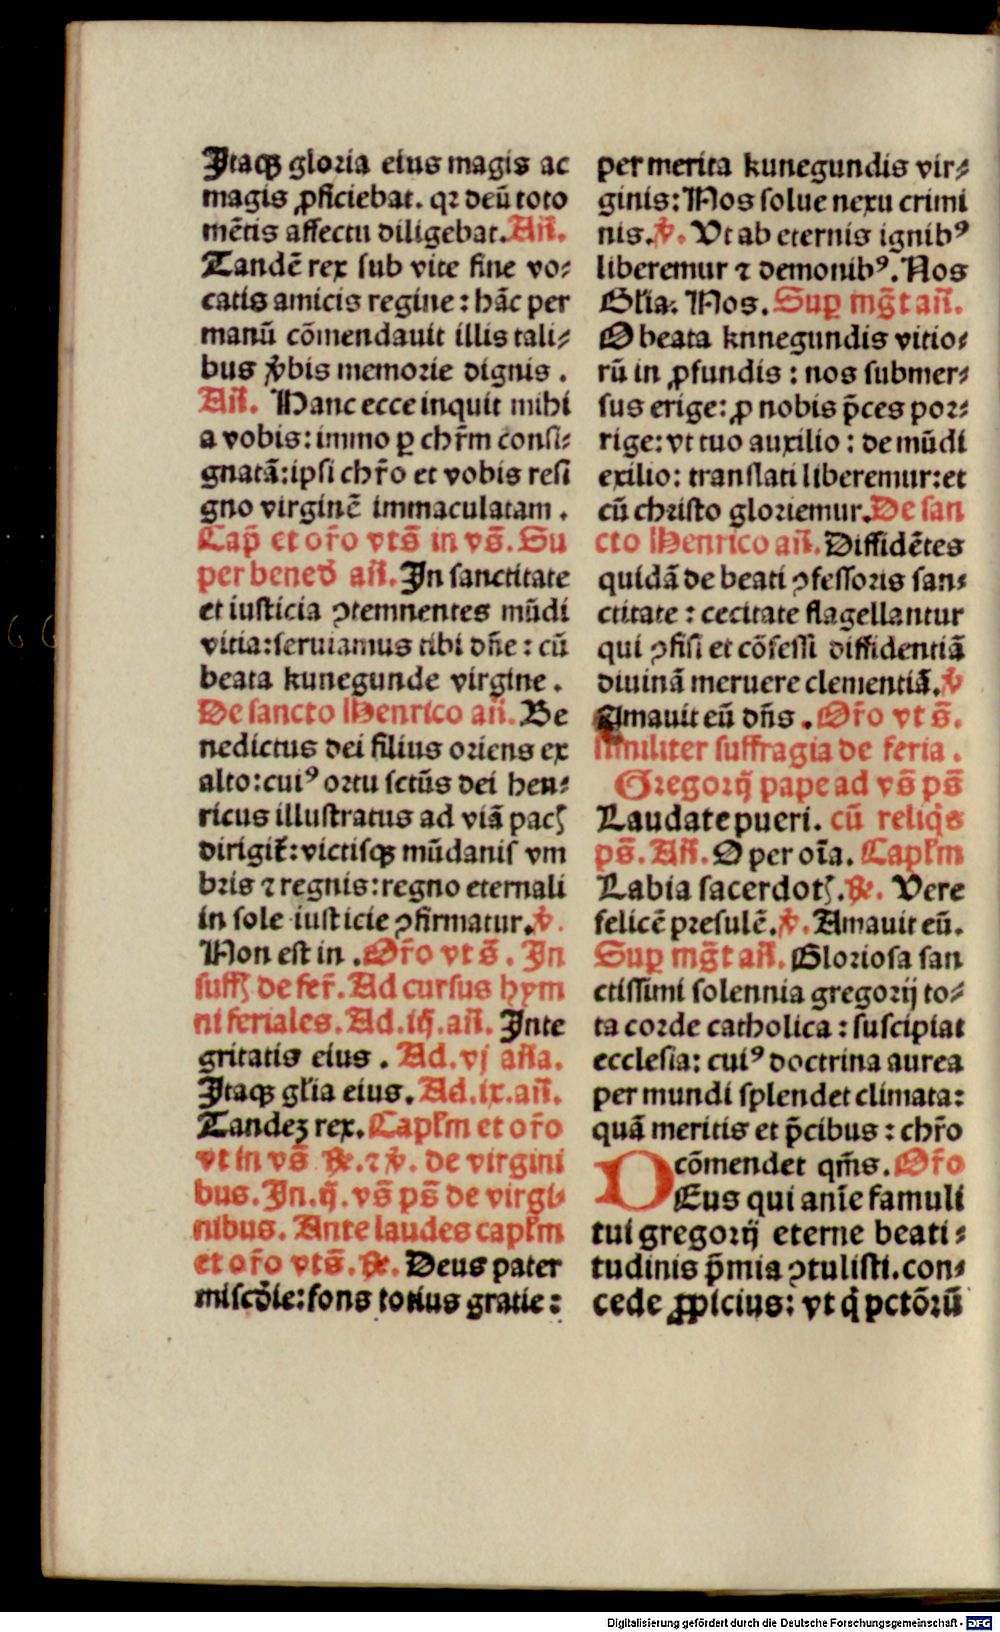 Itaqꝫ gloria eius magis ac
magis ꝓficiebat. qꝛ deū toto
mētis affectu diligebat. Añ.
Tandē rex sub vite fine vo⸗
catis amicis regine: hāc per
manū cōmendauit illis tali⸗
bus v̾bis memorie dignis.
Añ. Hanc ecce inquit mihi
a vobis: immo ꝑ chr̄m consi⸗
gnatā: ipsi chr̄o et vobis resi
gno virginē immaculatam.
Cap̄ et or̄o vts̄ in vs̄. Su
per bened̄ añ. In sanctitate
et iusticia ꝯtemnentes mūdi
vitia: seruiamus tibi dn̄e: cū
beata kunegunde virgine.
De sancto Henrico añ. Be
nedictus dei filius oriens ex
alto: cuiꝰ ortu sctūs dei hen⸗
ricus illustratus ad viā pacꝭ
dirigit᷑: victisqꝫ mūdanis vm
bris ⁊ regnis: regno eternali
in sole iusticie ꝯfirmatur. ℣.
Non est in. Or̄o vt s̄. In
suffꝭ de fer̄. Ad cursus hym
ni feriales. Ad. iij. añ. Inte
gritatis eius. Ad. vj an̄a.
Itaqꝫ gl̄ia eius. Ad. ix. añ.
Tandeꝫ rex. Capl̄m et or̄o
vt in vs̄ ꝶ. ⁊ ℣. de virgini
bus. In. ij. vs̄ ps̄ de virgi⸗
nibus. Ante laudes capl̄m
et or̄o vts̄. ꝶ. Deus pater
misc̄die: fons totius gratie:
per merita kunegundis vir⸗
ginis: Nos solue nexu crimi
nis. ℣. Vt ab eternis ignibꝰ
liberemur ⁊ demonibꝰ. Nos
Gl̄ia. Nos. Suꝑ mḡt añ.
O beata knnegundis vitio⸗
rū in ꝓfundis: nos submer⸗
sus erige: ꝓ nobis p̄ces por⸗
rige: vt tuo auxilio: de mūdi
exilio: translati liberemur: et
cū christo gloriemur. De san
cto Henrico añ. Diffidētes
quidā de beati ꝯfessoris san⸗
ctitate: cecitate flagellantur
qui ꝯfisi et cōfessi diffidentiā
diuinā meruere clementiā. ℣
Amauit eū dn̄s. Or̄o vt s̄.
similiter suffragia de feria.
Gregorij pape ad vs̄ ps̄
Laudate pueri. cū reliqͥs
ps̄. Añ. O per oīa. Capl̄m
Labia sacerdotꝭ. ꝶ. Vere
felicē presulē. ℣. Amauit eū.
Suꝑ mḡt añ. Gloriosa san
ctissimi solennia gregorij to⸗
ta corde catholica: suscipiat
ecclesia: cuiꝰ doctrina aurea
per mundi splendet climata:
quā meritis et p̄cibus: chr̄o
cōmendet qm̄s. Or̄o
DEus qui anīe famuli
tui gregorij eterne beati⸗
tudinis p̄mia ꝯtulisti. con⸗
cede ꝓpicius: vt qͥ pctōrū
Digitalisierung gefördert durch die Deutsche Forschungsgemeinschaft - DFG